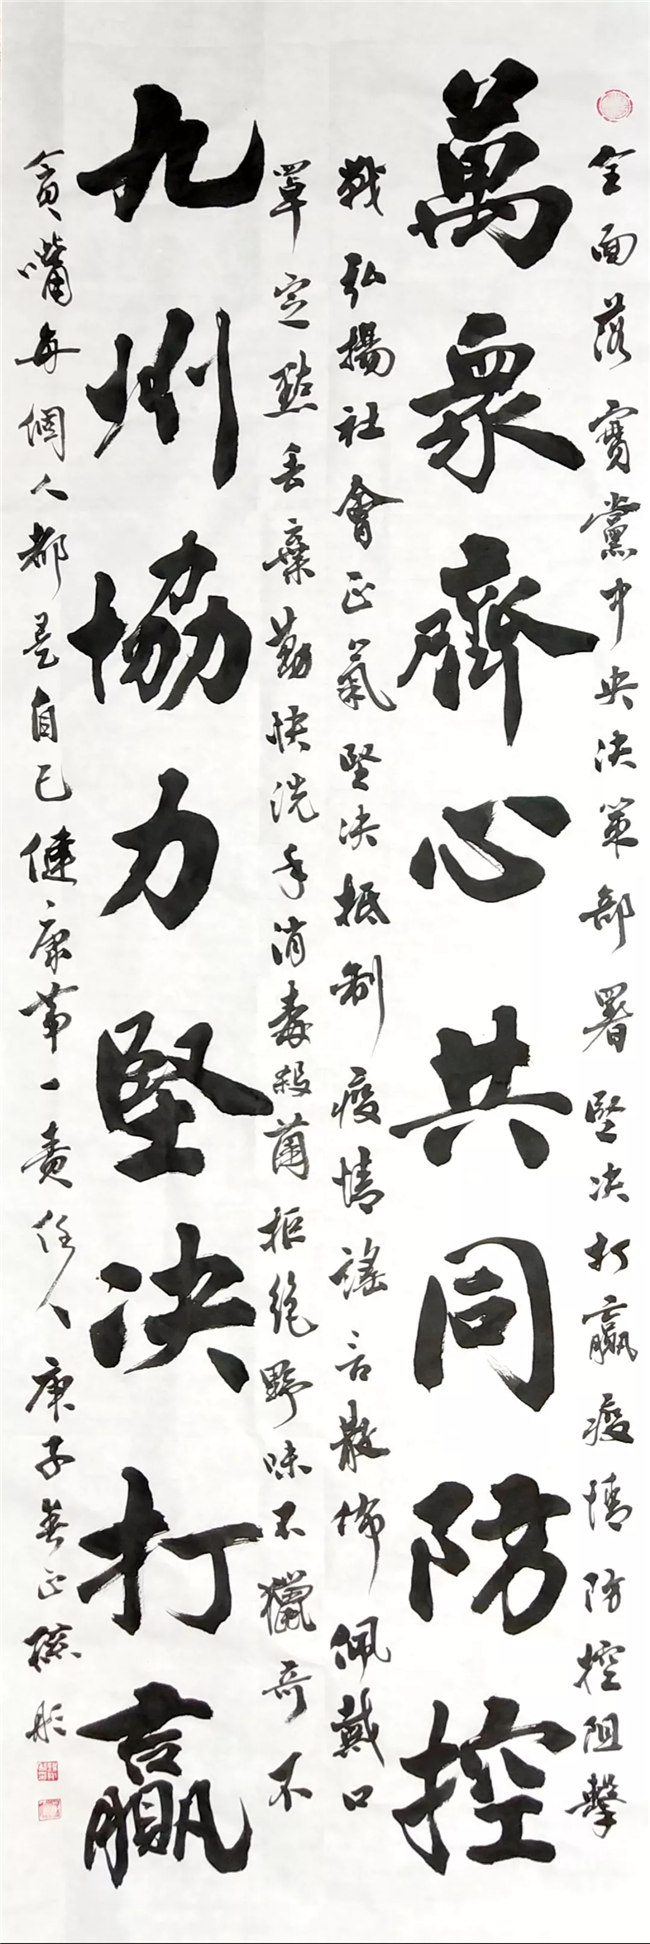 全面落實黨中央决策部署堅决打贏疫情防控阻擊
萬衆齊心共同防控
戰弘揚社會正氣堅决抵制疫情謠言散佈佩戴口
罩定點丢棄勤快洗手消毒殺菌拒絶野味不獵奇不
九州協力堅决打贏
貪嘴每個人都是自己健康第一責任人庚子春正